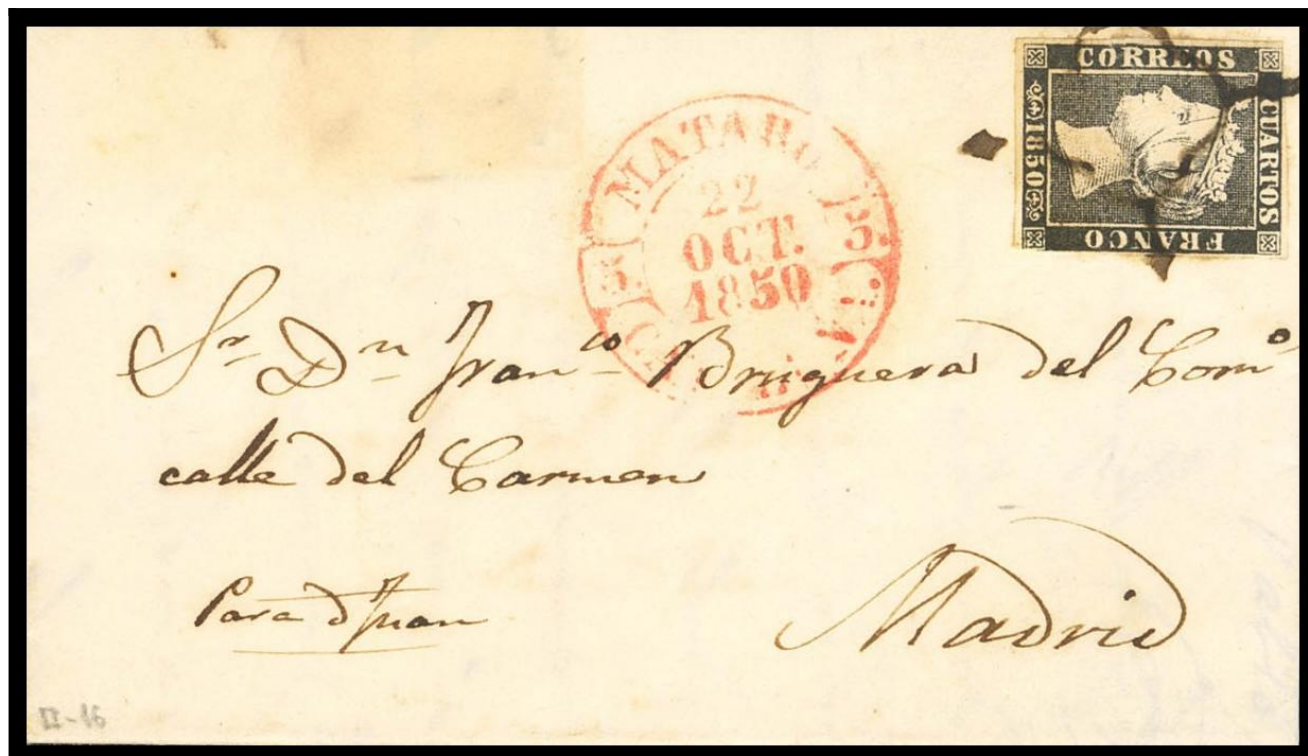 CORREOS
CUARTOS
FRANCO
1850
MATARO
22
OCT.
1850
5.
5.
Sr. Dn. Franco. Bruguera del Como
calle del Carmen
Para D Juan
Madrid
II-16